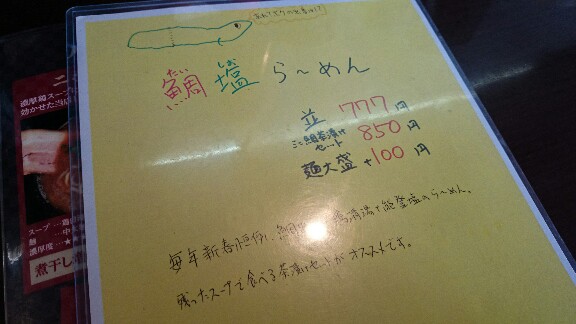 鯛塩ら〜めん
たい しお
並 777円
ミニ鯛茶漬け
セット 850円
麺大盛 +100円
毎年新春恒例、鯛 高清湯 能登塩のら〜めん。
残ったスープで食べる茶漬けセットがオススメです。
濃厚鶏スープ
効かせた当店
スープ
麺
濃厚度
煮干し